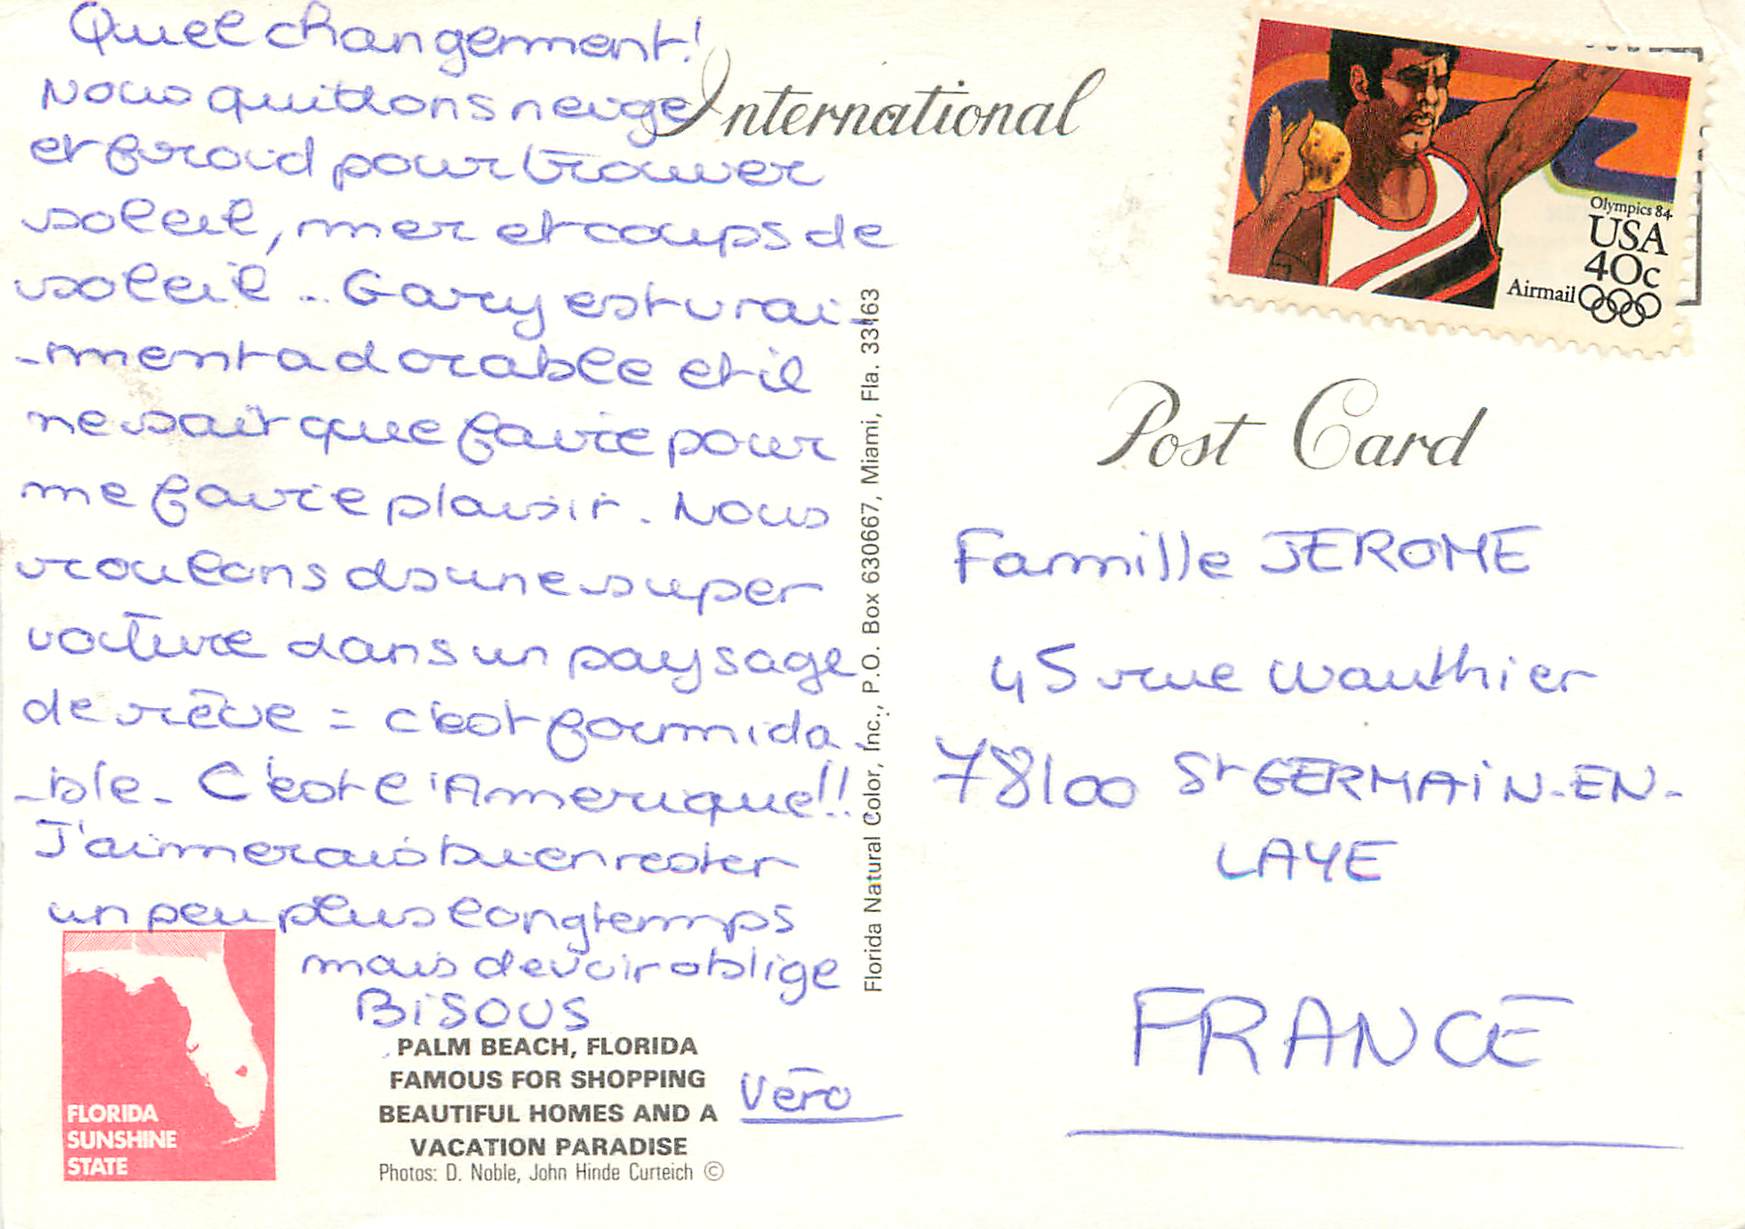 Quel changement!
Nous quittons neige
et froid pour trouver
soleil, mer et coups de
soleil.. Gary est vrai-
-ment adorable et il
ne sait que faire pour
me faire plaisir. Nous
roulons ds une super
voiture dans un paysage
de rêve = c'est formida-
-ble. C'est l'Amerique!!
J'aimerais bien rester
un peu plus longtemps
mais devoir oblige
BISOUS
Véro
International
Post Card
Olympics 84
USA
40c
Airmail
Famille JEROME
45 rue Wauthier
78100 St GERMAiN-EN-
LAYE
FRANCE
Florida Natural Color, Inc., P.O. Box 630667, Miami, Fla. 33163
FLORIDA
SUNSHINE
STATE
PALM BEACH, FLORIDA
FAMOUS FOR SHOPPING
BEAUTIFUL HOMES AND A
VACATION PARADISE
Photos: D. Noble, John Hinde Curteich ©